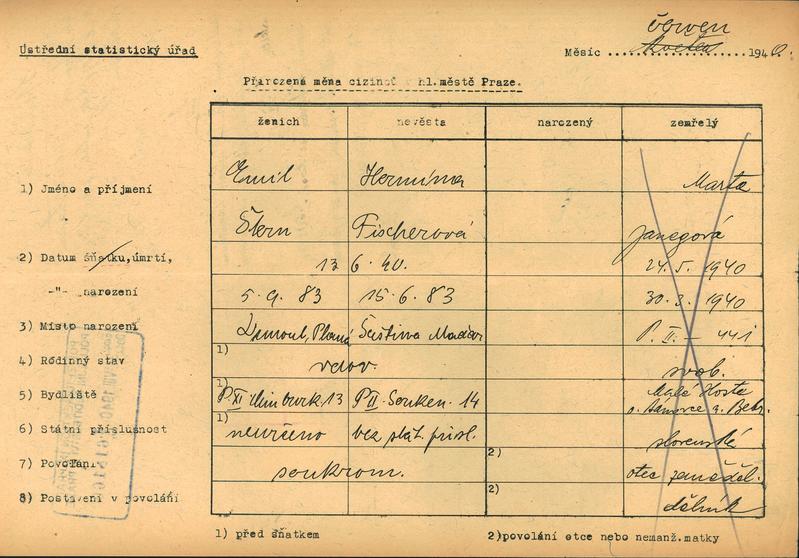 Ústřední statistický úřad
červen
Měsíc ........................194 0.
Přirozená měna cizinců v hl.městě Praze.
ženich nevěsta narozený zemřelý
1) Jméno a příjmení Emil Hermína Marta
" Štern Fischerová Janegová
2) Datum sňatku,úmrtí, 13 6. 40. 24. 5. 1940
-"- narození 5. 9. 83 15. 6. 83 30. 3. 1940
3) Místo narození Planá P. II. – 441
4) Rodinný stav 1) vdov. svob.
5) Bydliště 1) P XI 13 P II. Souken. 14 Malé Hoste
6) Státní příslušnost 1) neurčeno bez stát. přísl. slovenská
7) Povolání soukrom. 2) otec zeměděl.
8) Postavení v povolání 2) dělník
1) před sňatkem 2)povolání otce nebo nemanž.matky